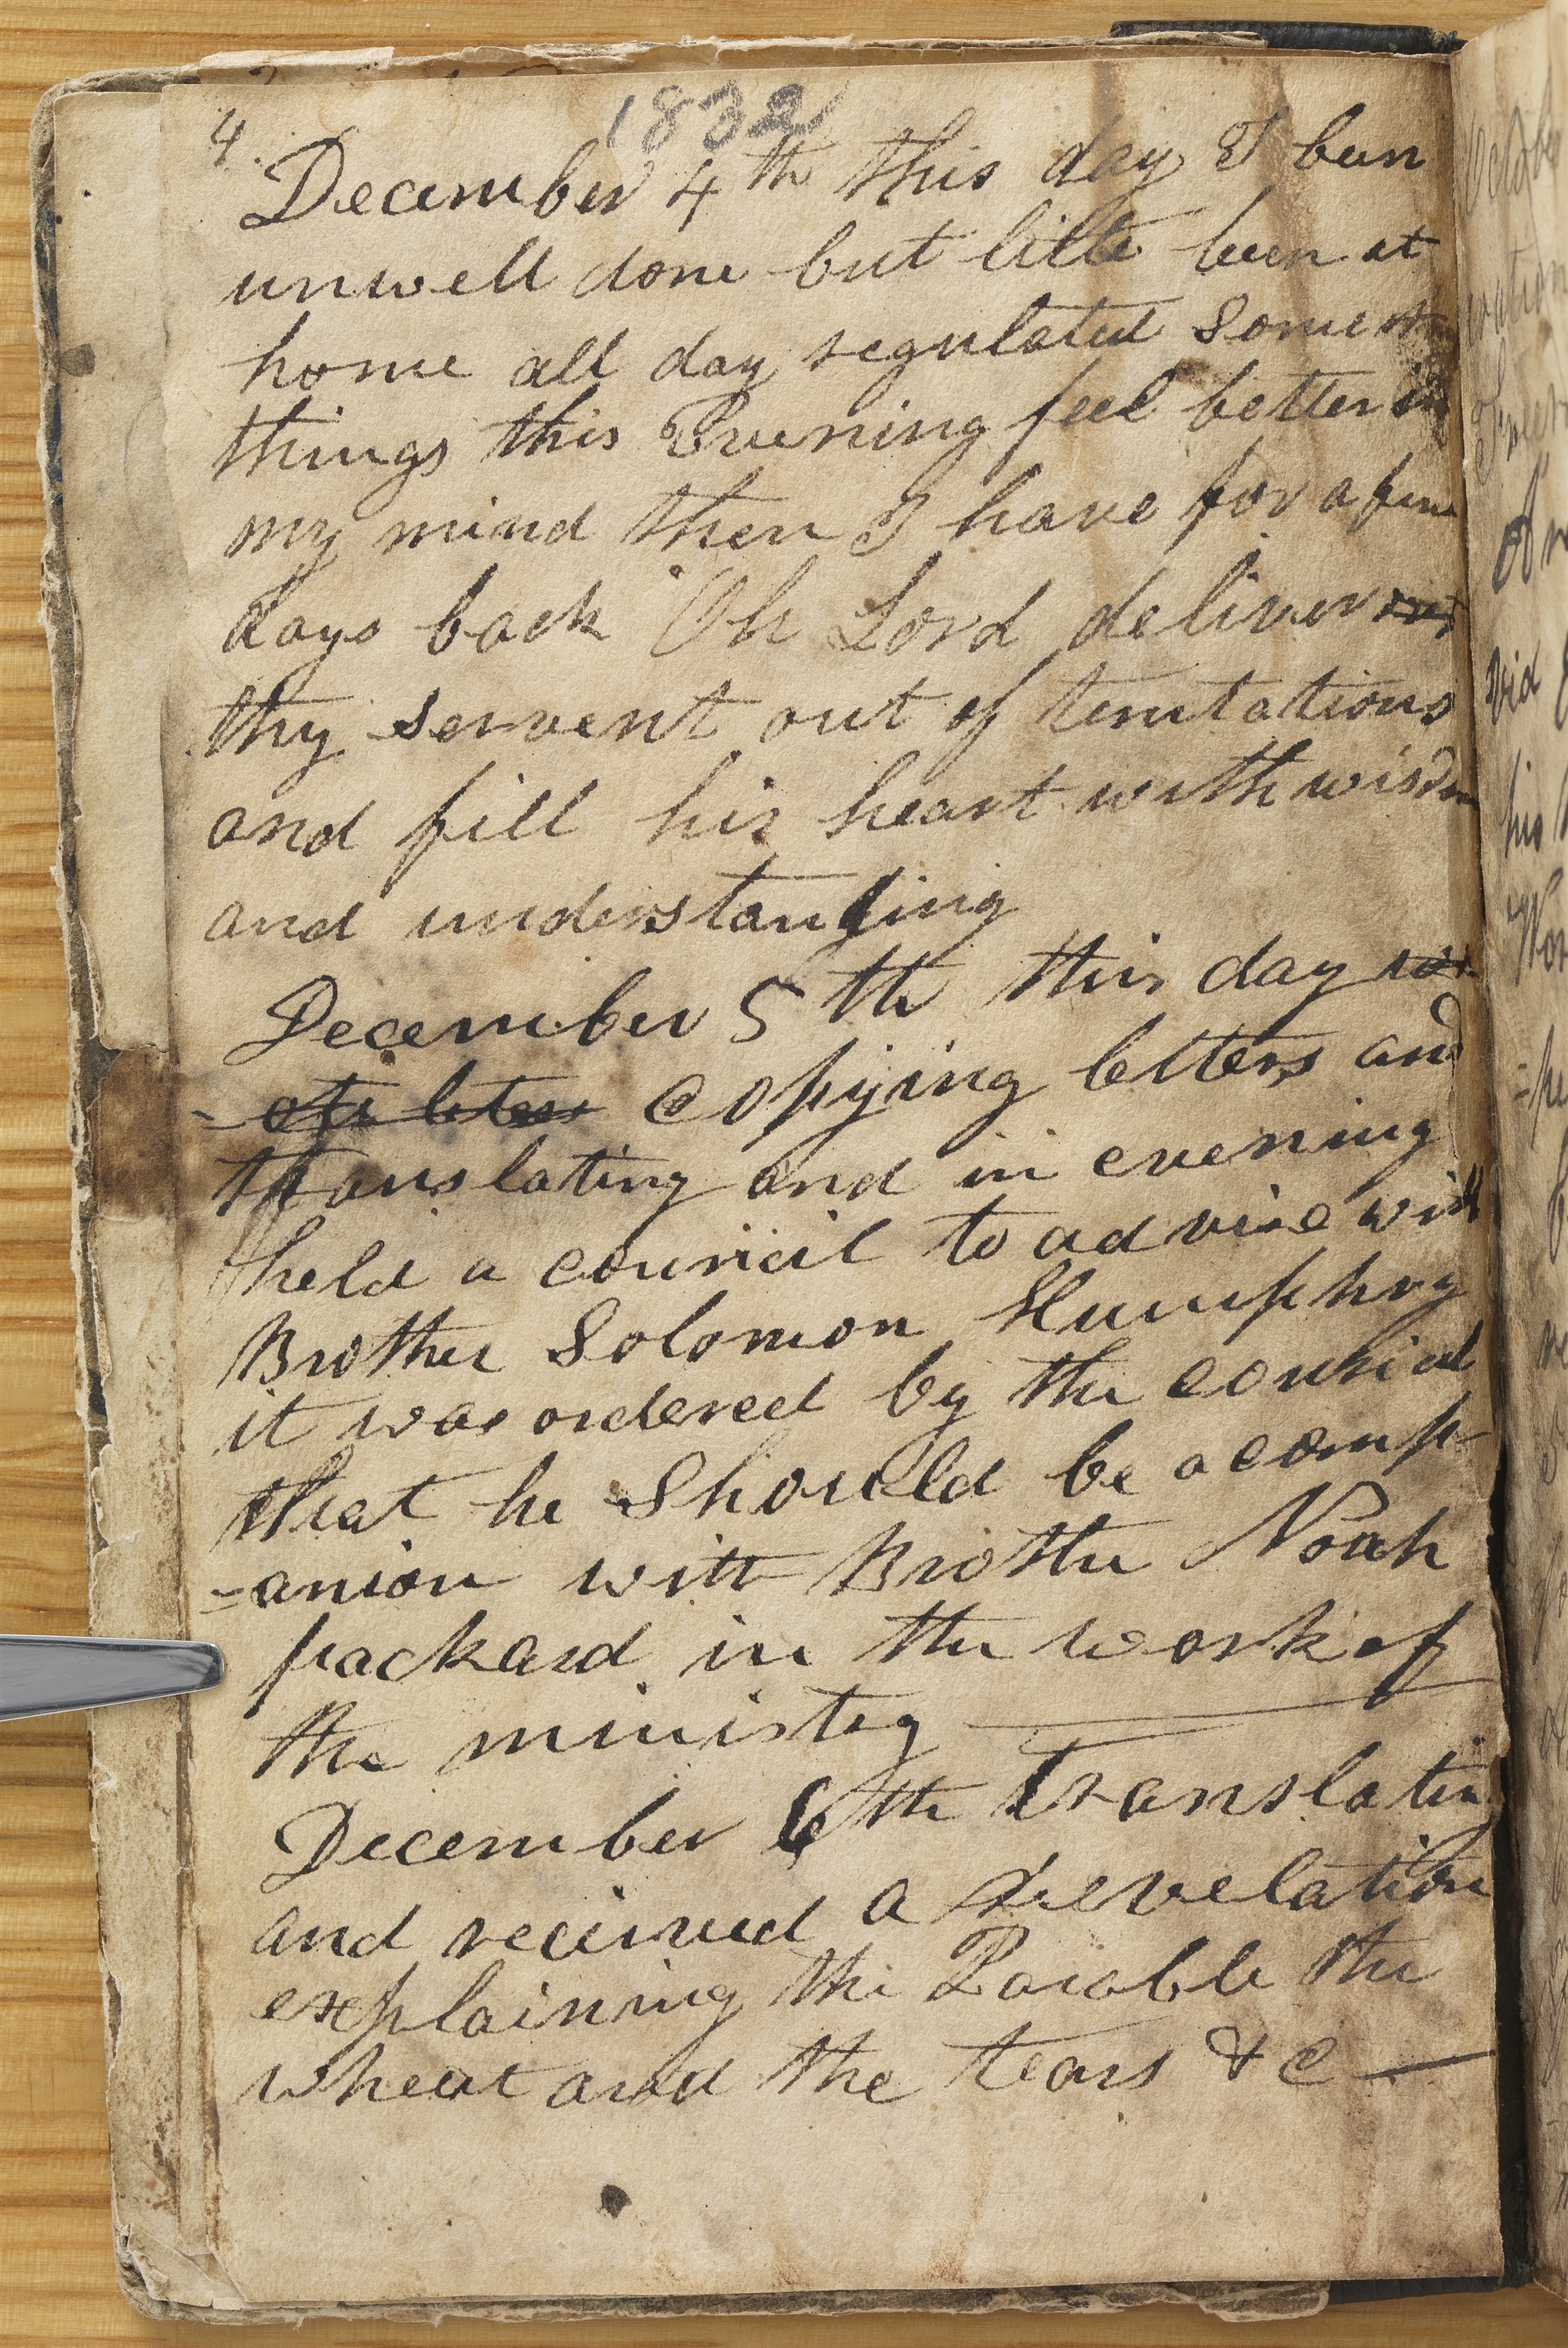 4.
1832
December 4th this day I been
unwell done but little been at
home all day regulated some
things this Evening feel better in
my mind then I have for a few
days back Oh Lord deliver out
thy servent out of temtations
and fill his heart with wisdom
and understanding
December 5th this day wr
- ote letters copying letters and
translating and in evening
held a council to advise with
Brother Solomon Humphry
it was ordered by the council
that he should be a comp
=anion with Brother Noah
packard in the work of
the ministry
December 6th translating
and received a Revelation
explaining the Parable the
wheat and the tears &c